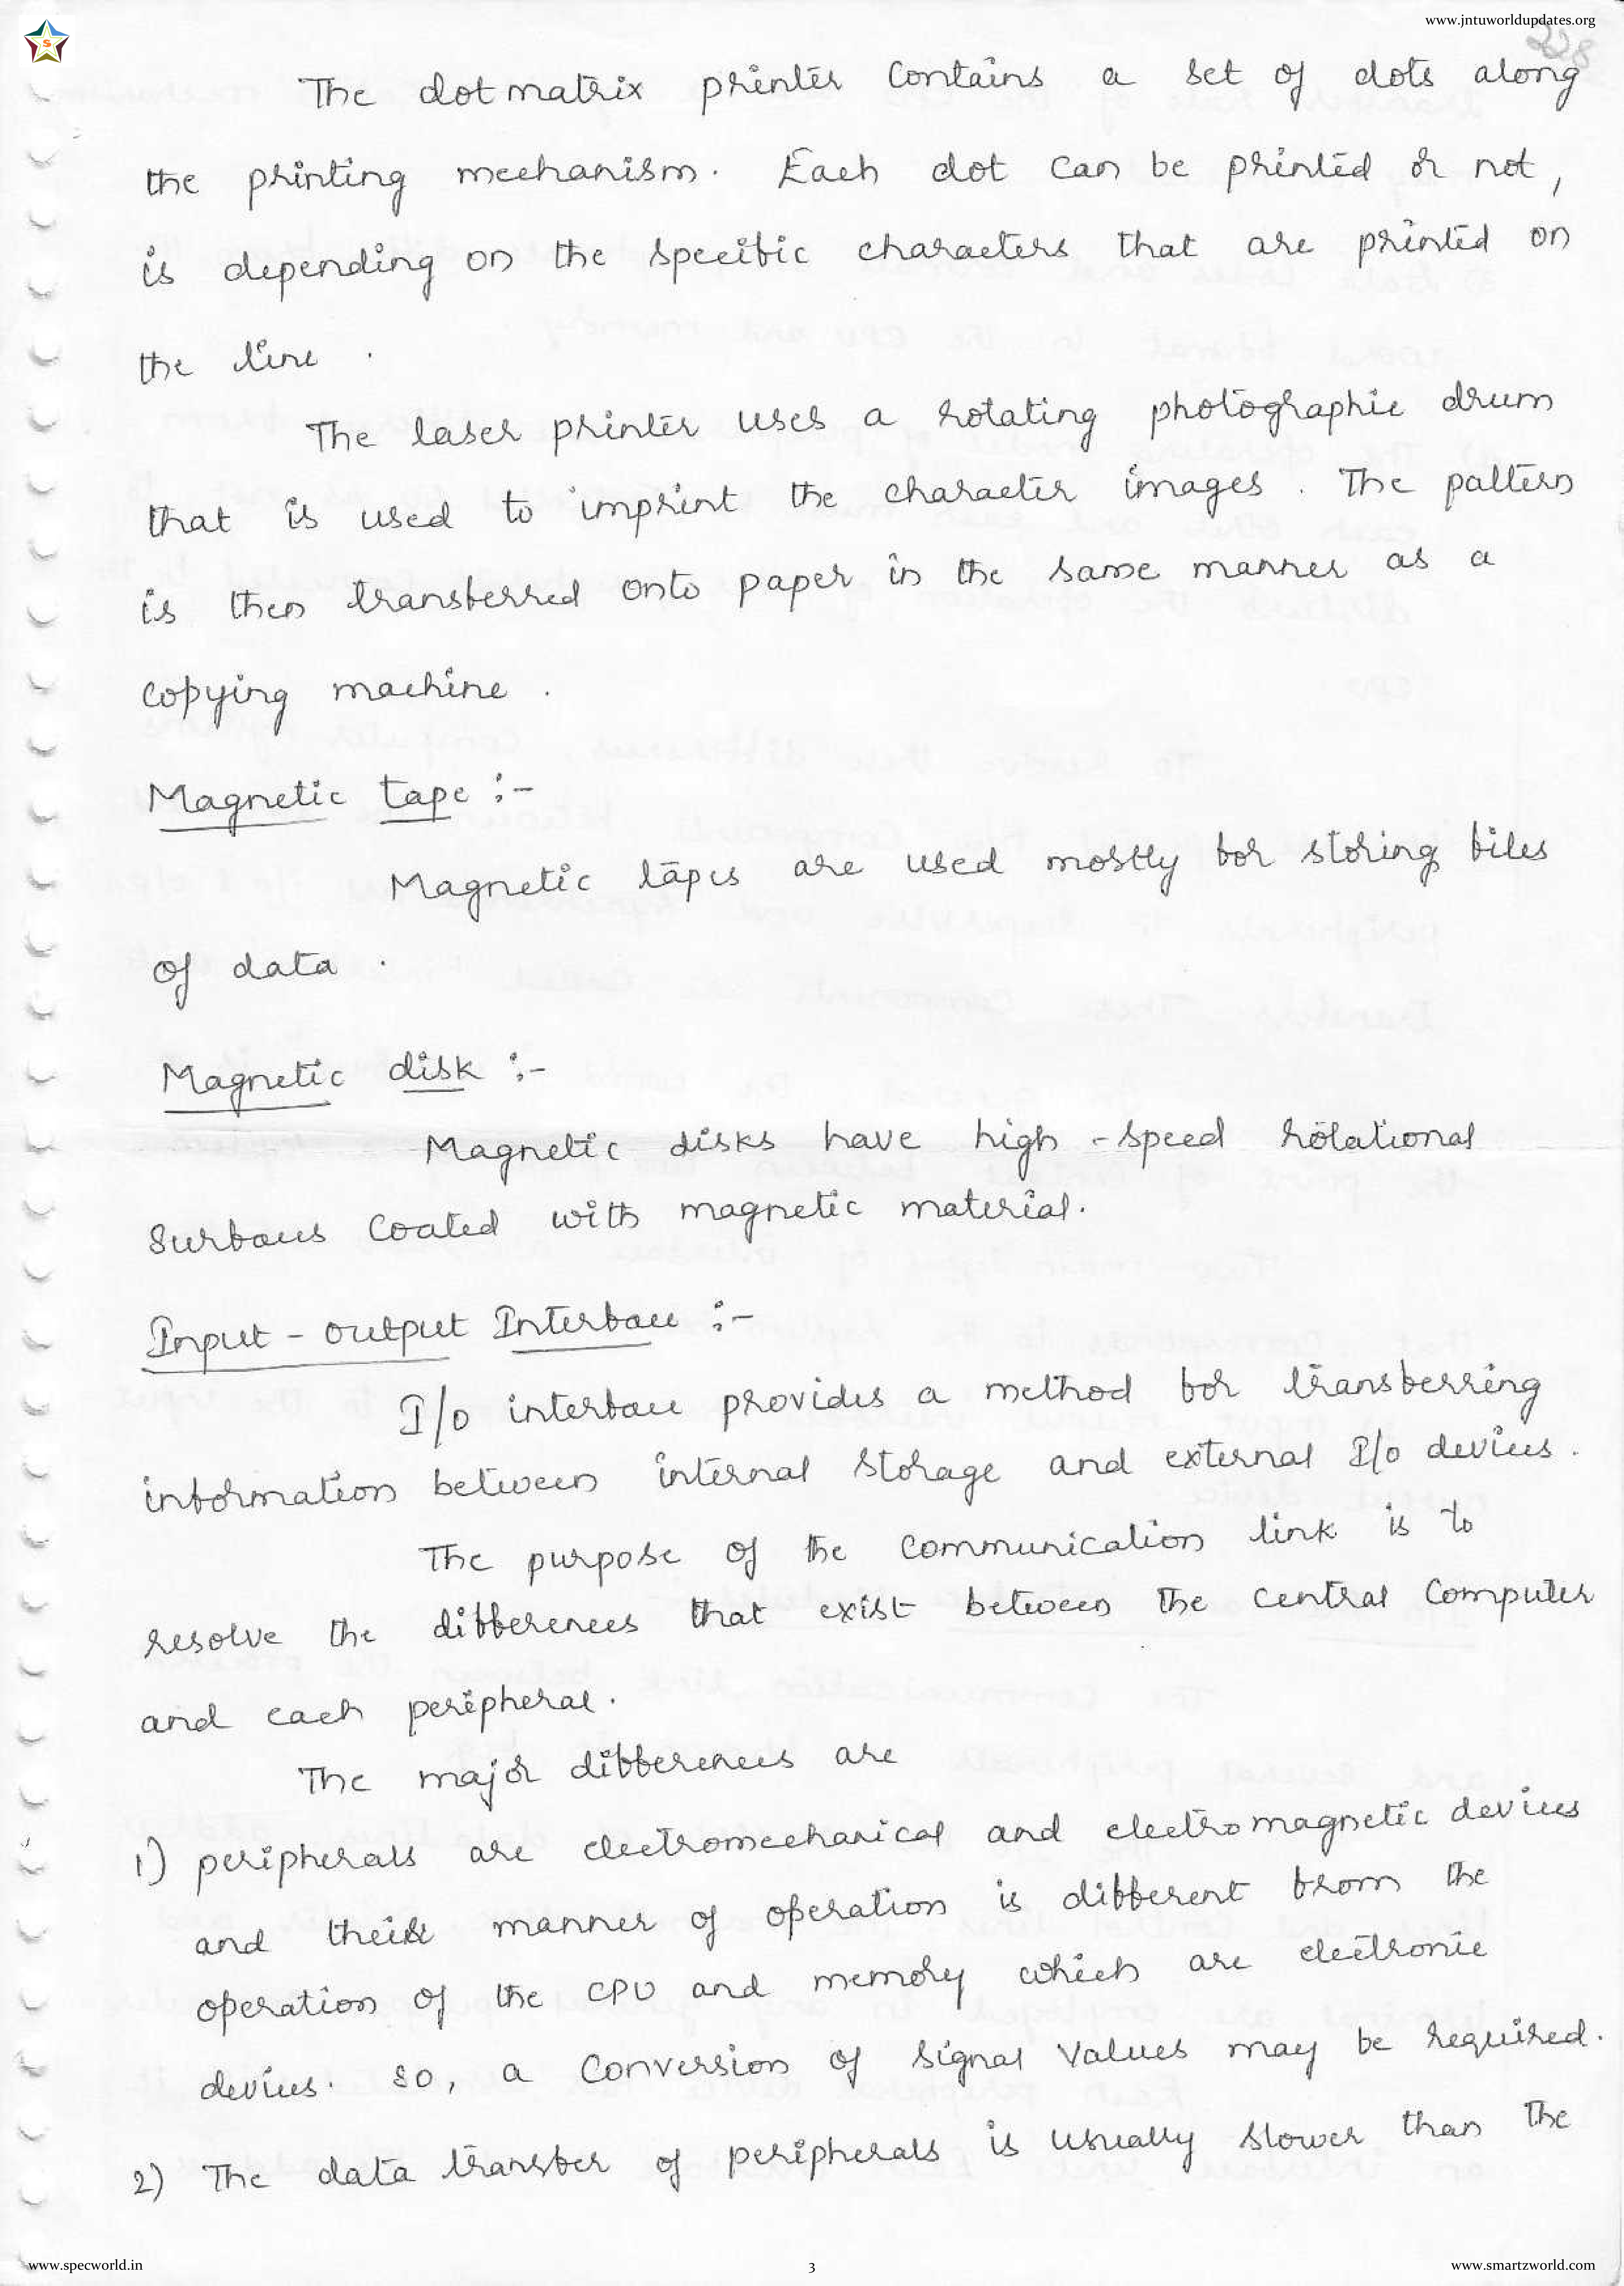 www.jntuworldupdates.org
S
228
The dot matrix printer contains a set of dots along
the printing mechanism. Each dot can be printed or not,
is depending on the specific characters that are printed on
the line.
The laser printer uses a rotating photographic drum
that is used to imprint the character images. The pattern
is then transferred onto paper in the same manner as a
copying machine.
Magnetic tape :-
Magnetic tapes are used mostly for storing files
of data.
Magnetic disk :-
Magnetic disks have high-speed rotational
surfaces coated with magnetic material.
Input-output Interface :-
I/o interface provides a method for transferring
information between internal storage and external I/o devices.
The purpose of the communication link is to
resolve the differences that exist between the central computer
and each peripheral.
The major differences are
1) peripherals are electromechanical and electromagnetic devices
and their manner of operation is different from the
operation of the CPU and memory which are electronic
devices. so, a conversion of signal values may be required.
2) The data transfer of peripherals is usually slower than the
www.specworld.in
3
www.smartzworld.com